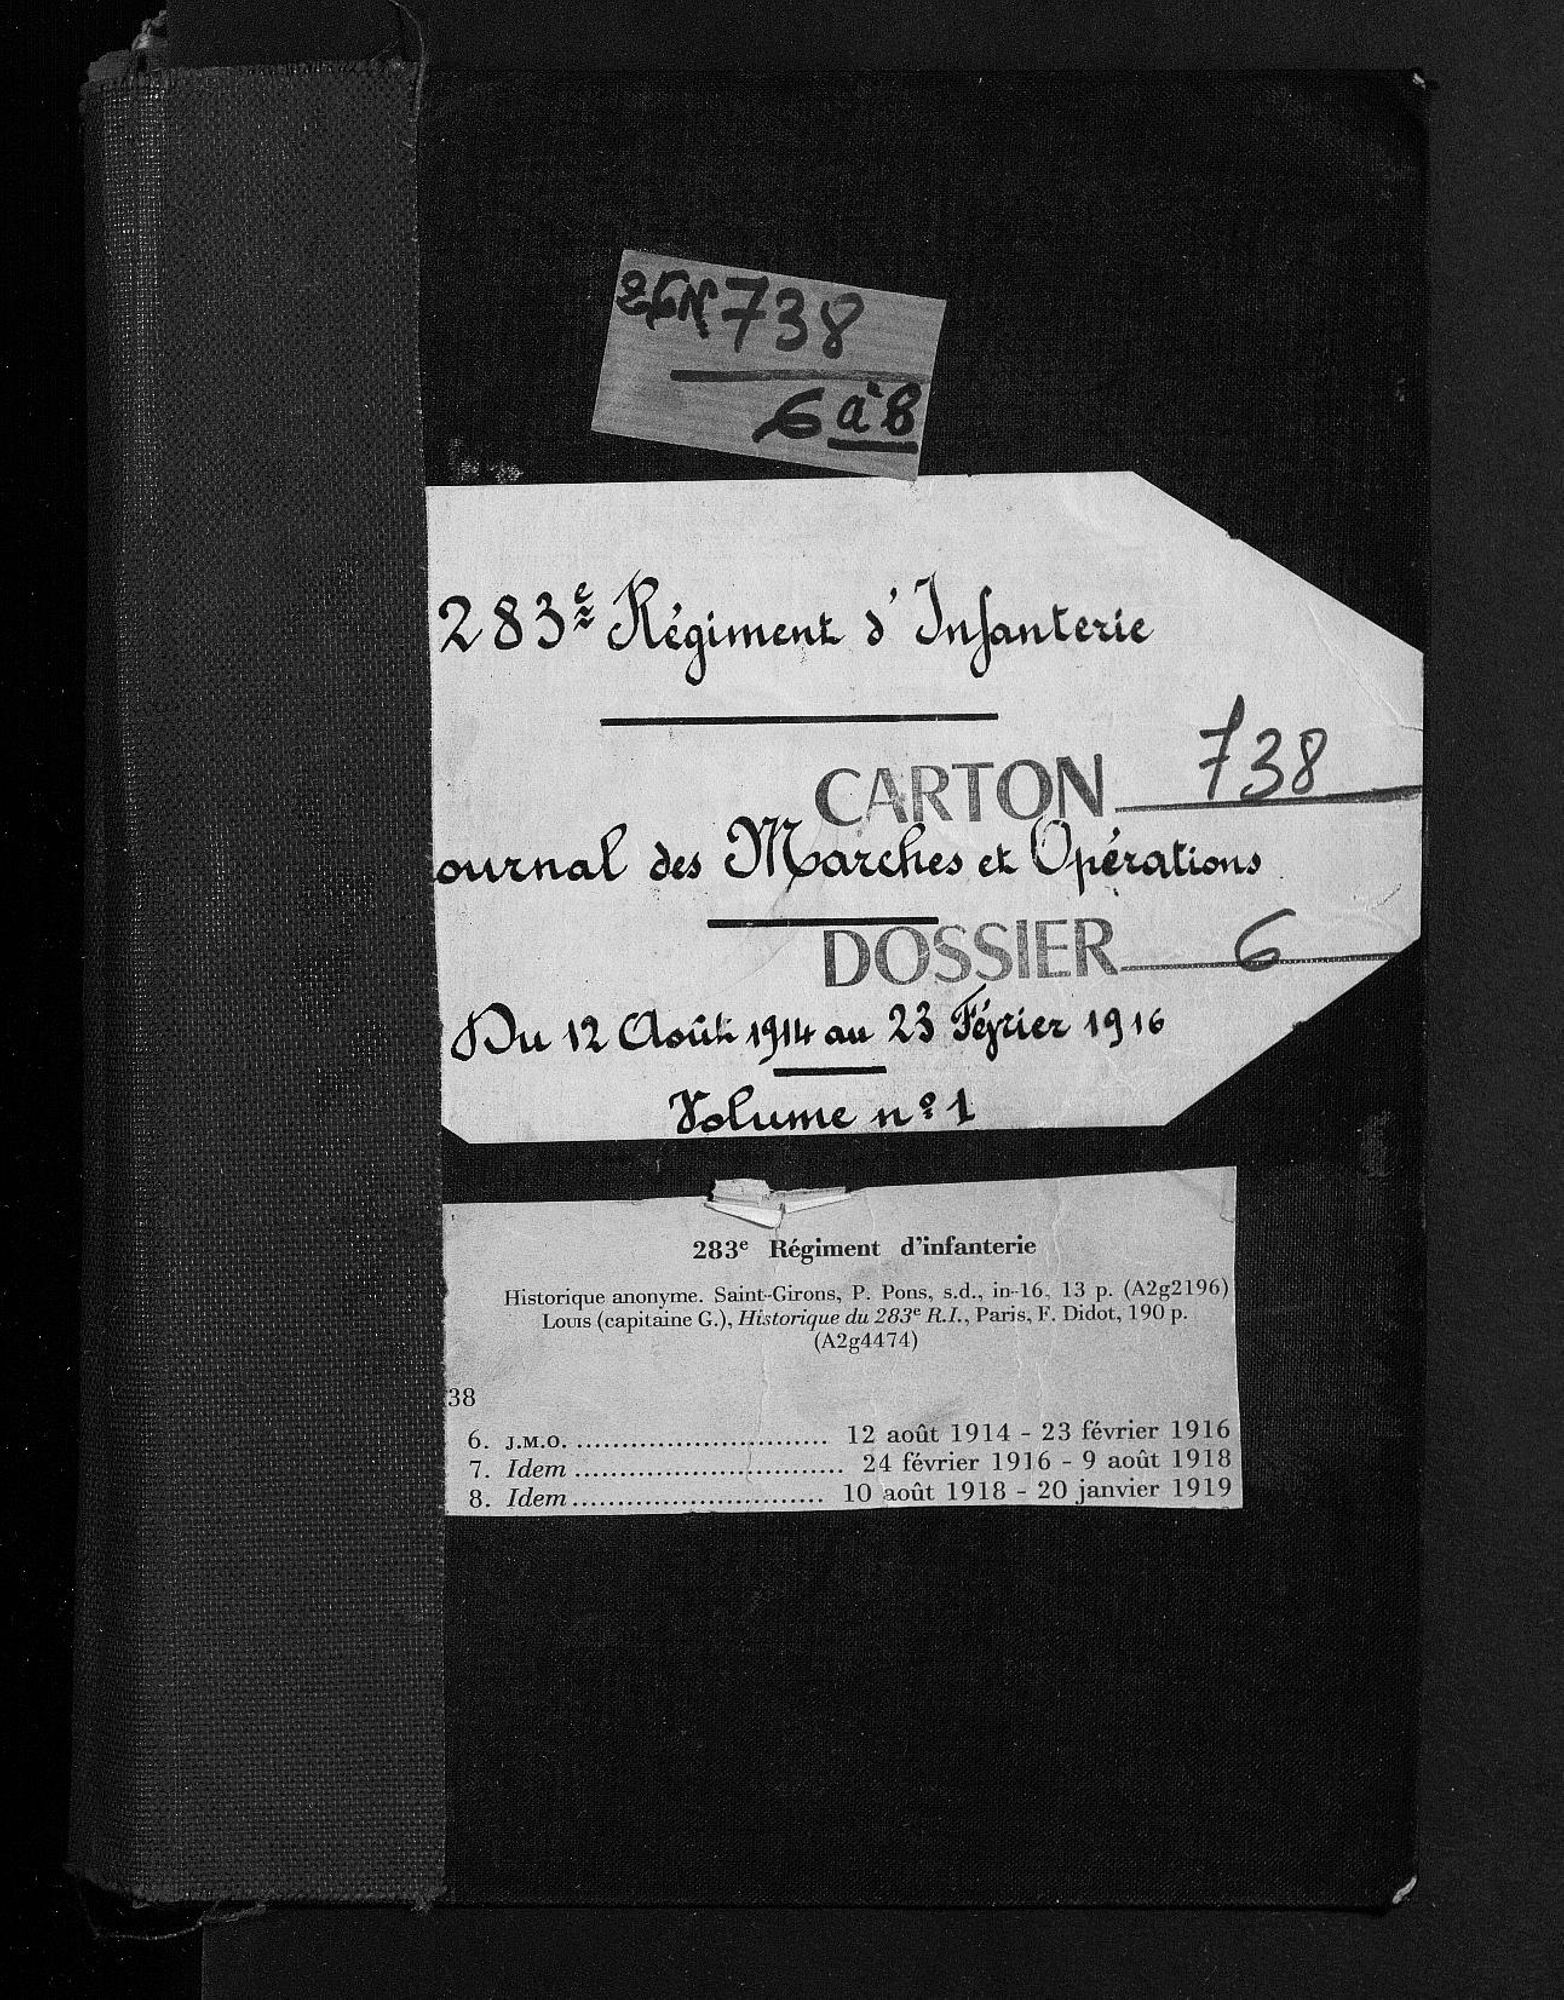 26N738
6 à 8
283e Régiment d'Infanterie
CARTON 738
ournal des Marches et Opérations
DOSSIER 6
Du 12 Août 1914 au 23 Février 1916
Volume n° 1
283e Régiment d'infanterie
Historique anonyme. Saint-Girons, P. Pons, s.d., in-16, 13 p. (A2g2196)
Louis (capitaine G.), Historique du 283e R.I., Paris, F. Didot, 190 p.
(A2g4474)
38
6. J.M.O. ............................ 12 août 1914 - 23 février 1916
7. Idem .............................. 24 février 1916 - 9 août 1918
8. Idem ............................ 10 août 1918 - 20 janvier 1919